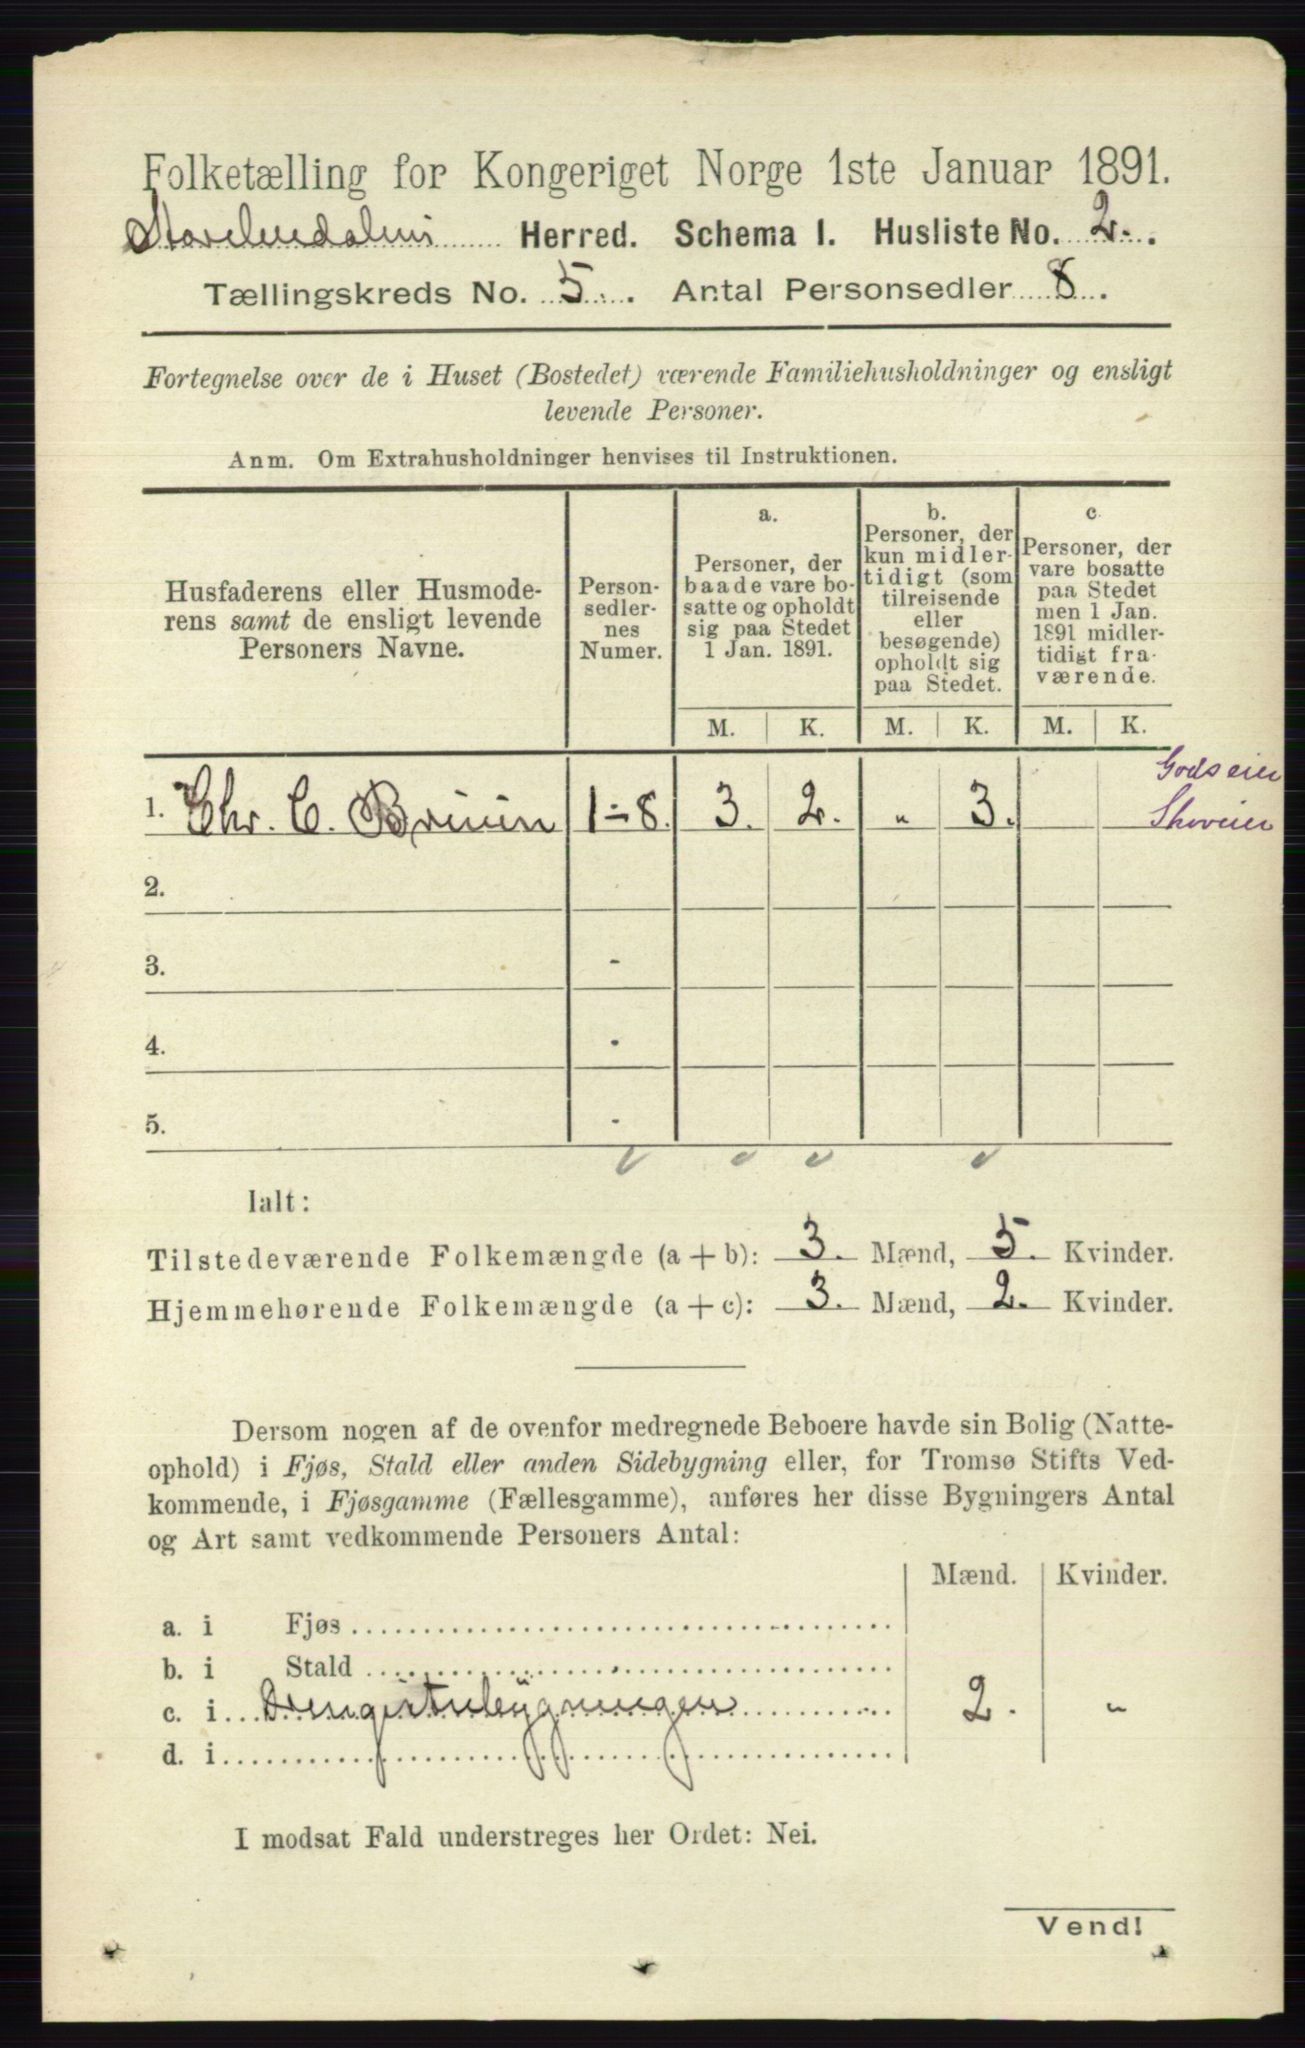 Folketælling for Kongeriget Norge 1ste Januar 1891.
Storelvedalens Herred. Schema I. Husliste No. 2.
Tællingskreds No. 5. Antal Personsedler 8.
Fortegnelse over de i Huset (Bostedet) værende Familiehusholdninger og ensligt
levende Personer.
Anm. Om Extrahusholdninger henvises til Instruktionen.
Husfaderens eller Husmode-
rens samt de ensligt levende
Personers Navne.
Person-
sedler-
nes
Numer.
a.
Personer, der
baade vare bo-
satte og opholdt
sig paa Stedet
1 Jan. 1891.
b.
Personer, der
kun midler-
tidigt (som
tilreisende
eller
besøgende)
opholdt sig
paa Stedet.
c.
Personer, der
vare bosatte
paa Stedet
men 1 Jan.
1891 midler-
tidigt fra-
værende.
M. K. M. K. M. K.
Godseier
1. Chr. C. Bruun 1-8. 3. 2. " 3. Skoveier
2.
3. -
4. -
5. -
Ialt:
Tilstedeværende Folkemængde (a + b): 3. Mænd, 5. Kvinder.
Hjemmehørende Folkemængde (a + c): 3. Mænd, 2. Kvinder.
Dersom nogen af de ovenfor medregnede Beboere havde sin Bolig (Natte-
ophold) i Fjøs, Stald eller anden Sidebygning eller, for Tromsø Stifts Ved-
kommende, i Fjøsgamme (Fællesgamme), anføres her disse Bygningers Antal
og Art samt vedkommende Personers Antal:
Mænd. Kvinder.
a. i Fjøs
b. i Stald
c. i 2. "
d. i
I modsat Fald understreges her Ordet: Nei.
Vend!